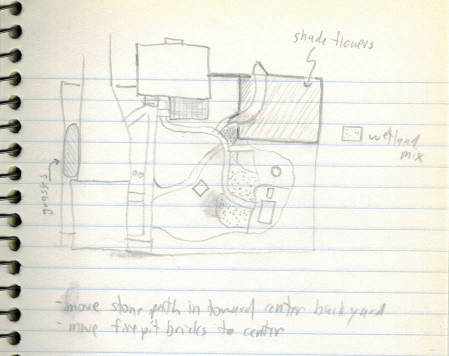 shade flowers
wetland
mix
grasses
-move stone path in toward center backyard
-move firepit bricks to center